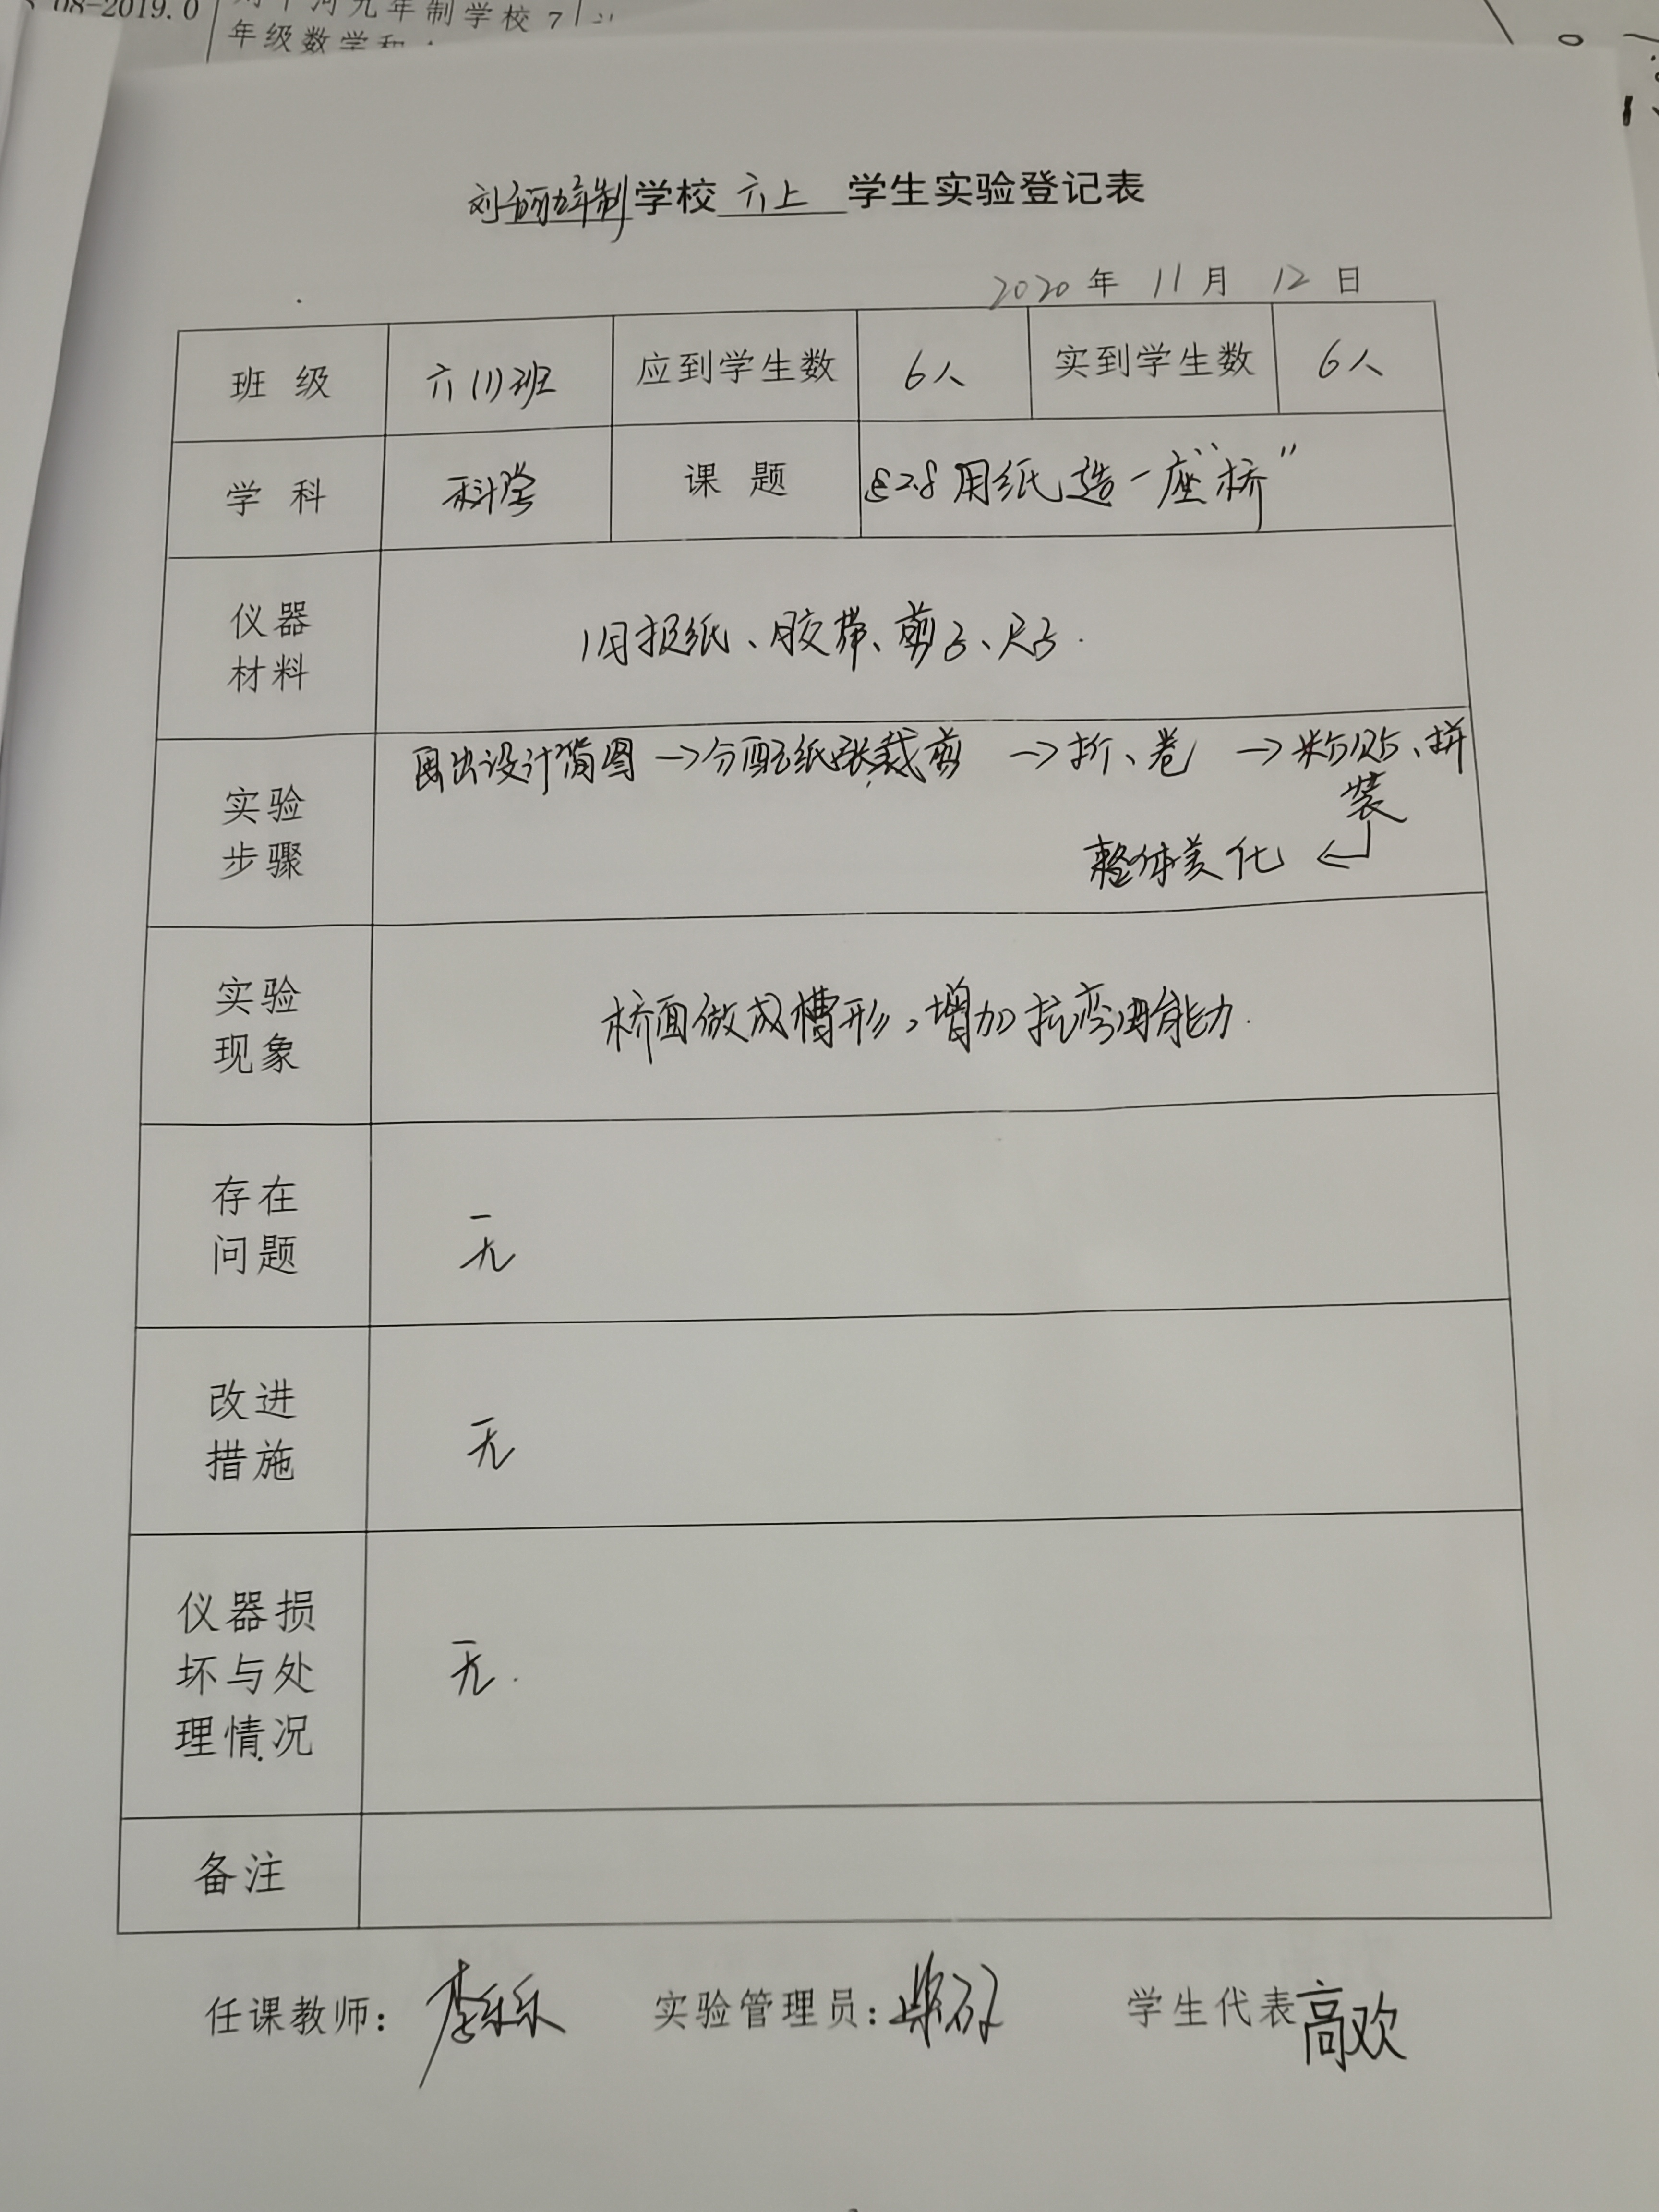 08-2019.0
河九年制学校7
年级数学和
学校 六上 学生实验登记表
2020年 11月 12日
班 级 六(1)班 应到学生数 6人 实到学生数 6人
学 科 科学 课 题 §2.8 用纸造一座"桥"
仪器
材料
旧报纸、胶带、剪子、尺子.
实验
步骤
画出设计简图→分配纸张裁剪 →折、卷 →粘贴、拼
装
整体美化 ←
实验
现象
桥面做成槽形,增加抗弯曲能力.
存在
问题
无
改进
措施
无
仪器损
坏与处
理情况
无.
备注
任课教师: 李乐乐 实验管理员: 学生代表 高欢